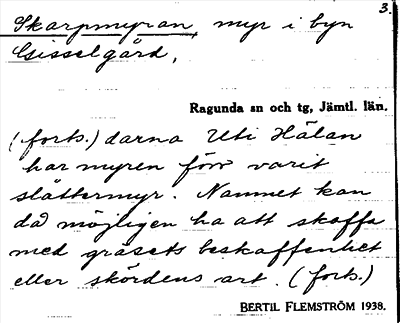 3.
Skarpmyran, myr i byn
Gisselgård,
Ragunda sn och tg, Jämtl. län.
(forts.) darna Uti Hälan
har myren förr varit
slåttermyr. Namnet kan
då möjligen ha att skaffa
med gräsets beskaffenhet
eller skördens art. (forts.)
BERTIL FLEMSTRÖM 1938.